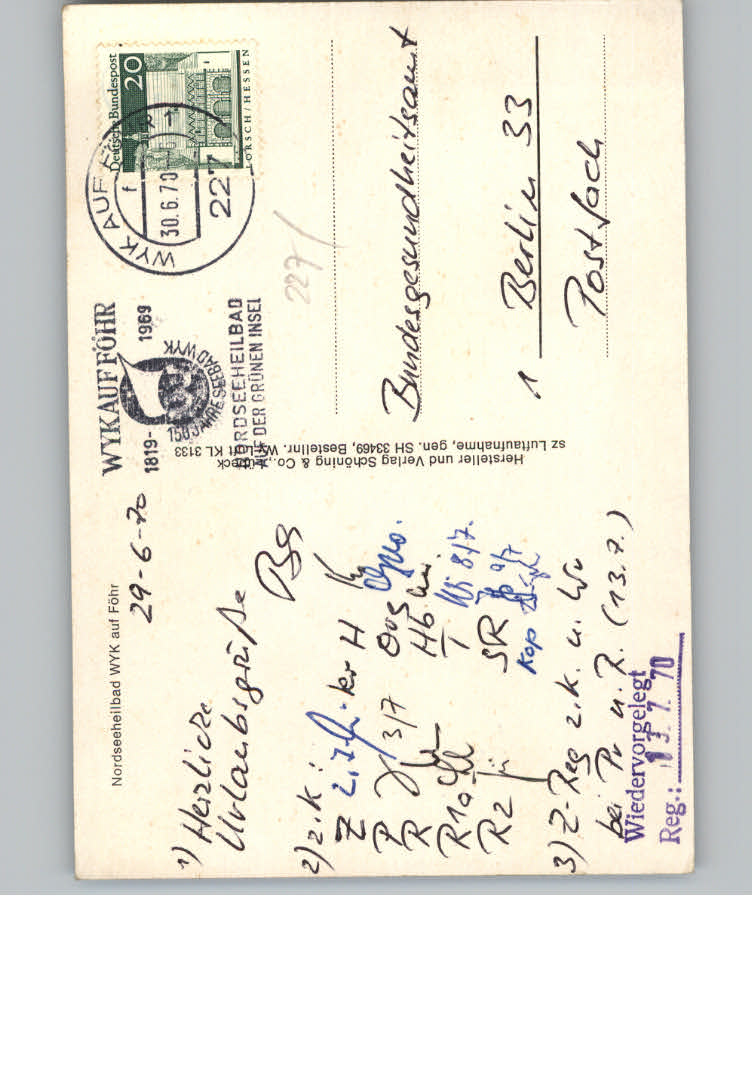 Nordseeheilbad WYK auf Föhr
29-6-70
1) Herzliche
Urlaubsgrüße
2) z.K:
Z
P 3/7
R
R1a
R2
H
Hb
T
SR
Kop
3) Z-Reg z.K. u. Wv
bei Pr u. R. (13.7.)
Wiedervorgelegt
13. 7. 70
Reg.:
Hersteller und Verlag Schöning & Co., Lübeck
sz Luftaufnahme, gen. SH 33469, Bestellnr. Wyk Luft KL 3133
WYK AUF FÖHR
1819-1969
150 JAHRE SEEBAD WYK
NORDSEEHEILBAD
AUF DER GRÜNEN INSEL
WYK AUF FÖHR
f
30.6.70
227
Deutsche Bundespost
20
LORSCH/HESSEN
227/
Bundesgesundheitsamt
1 Berlin 33
Postfach